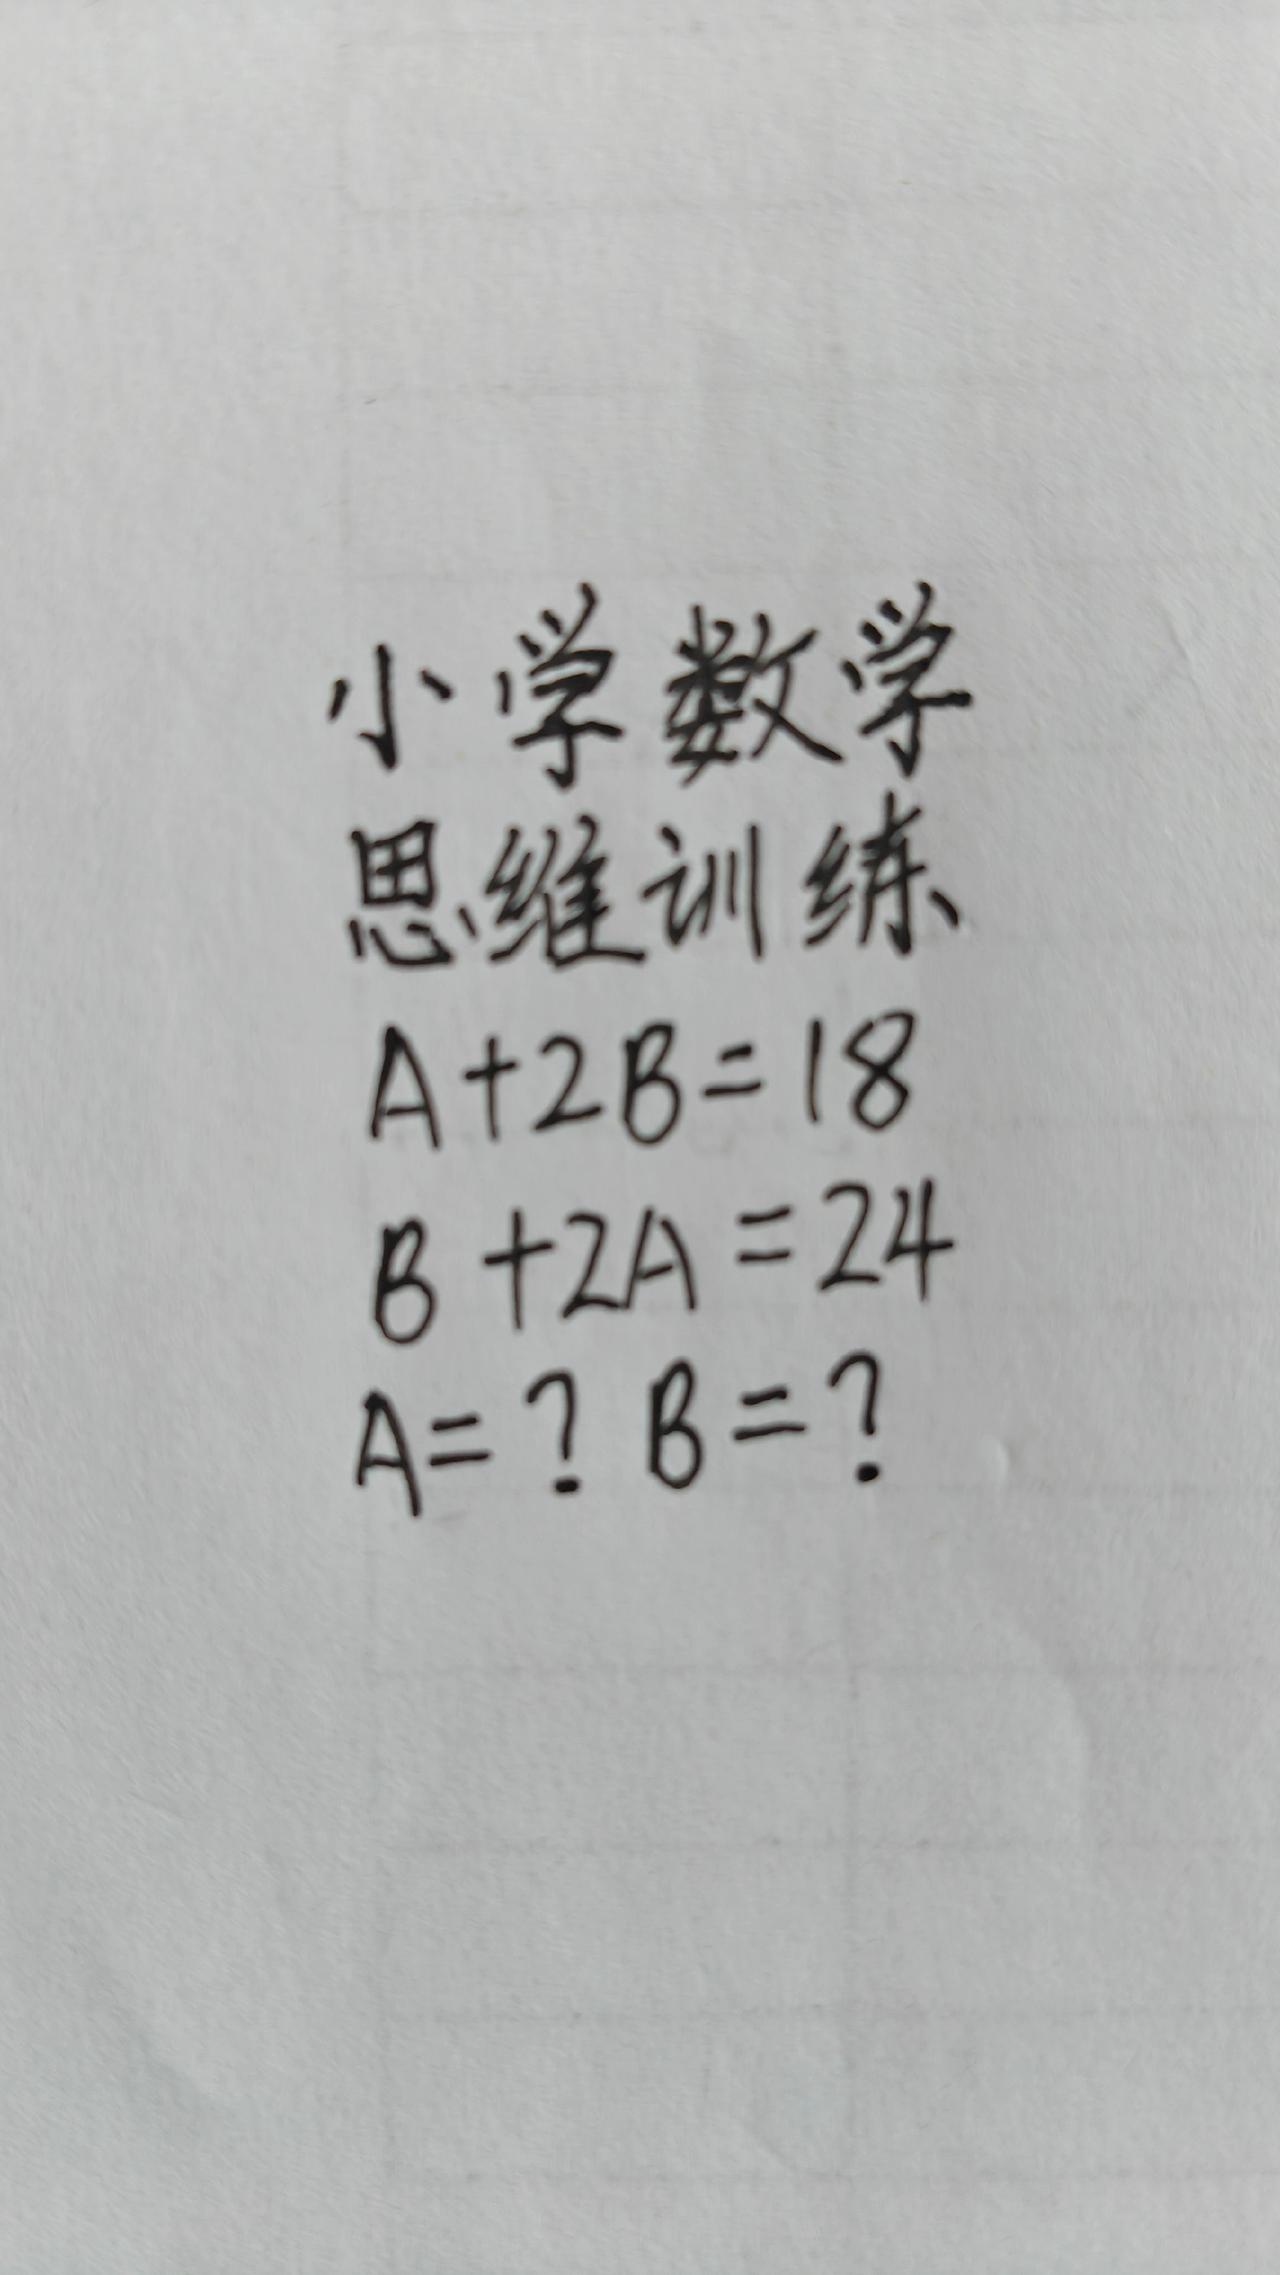 小学数学
思维训练
A+2B=18
B+2A=24
A=? B=?